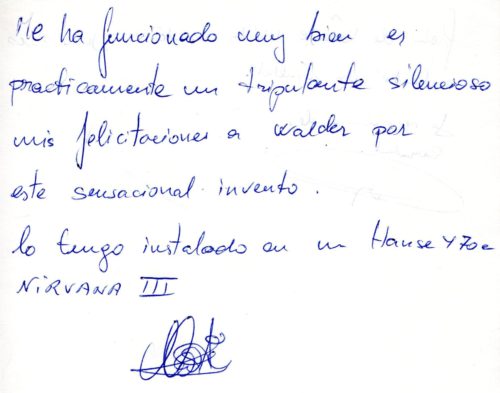 Me ha funcionado muy bien es
practicamente un tripulante silencioso
mis felicitaciones a walder por
este sensacional invento.
lo tengo instalado en un Hanse 470e
NIRVANA III